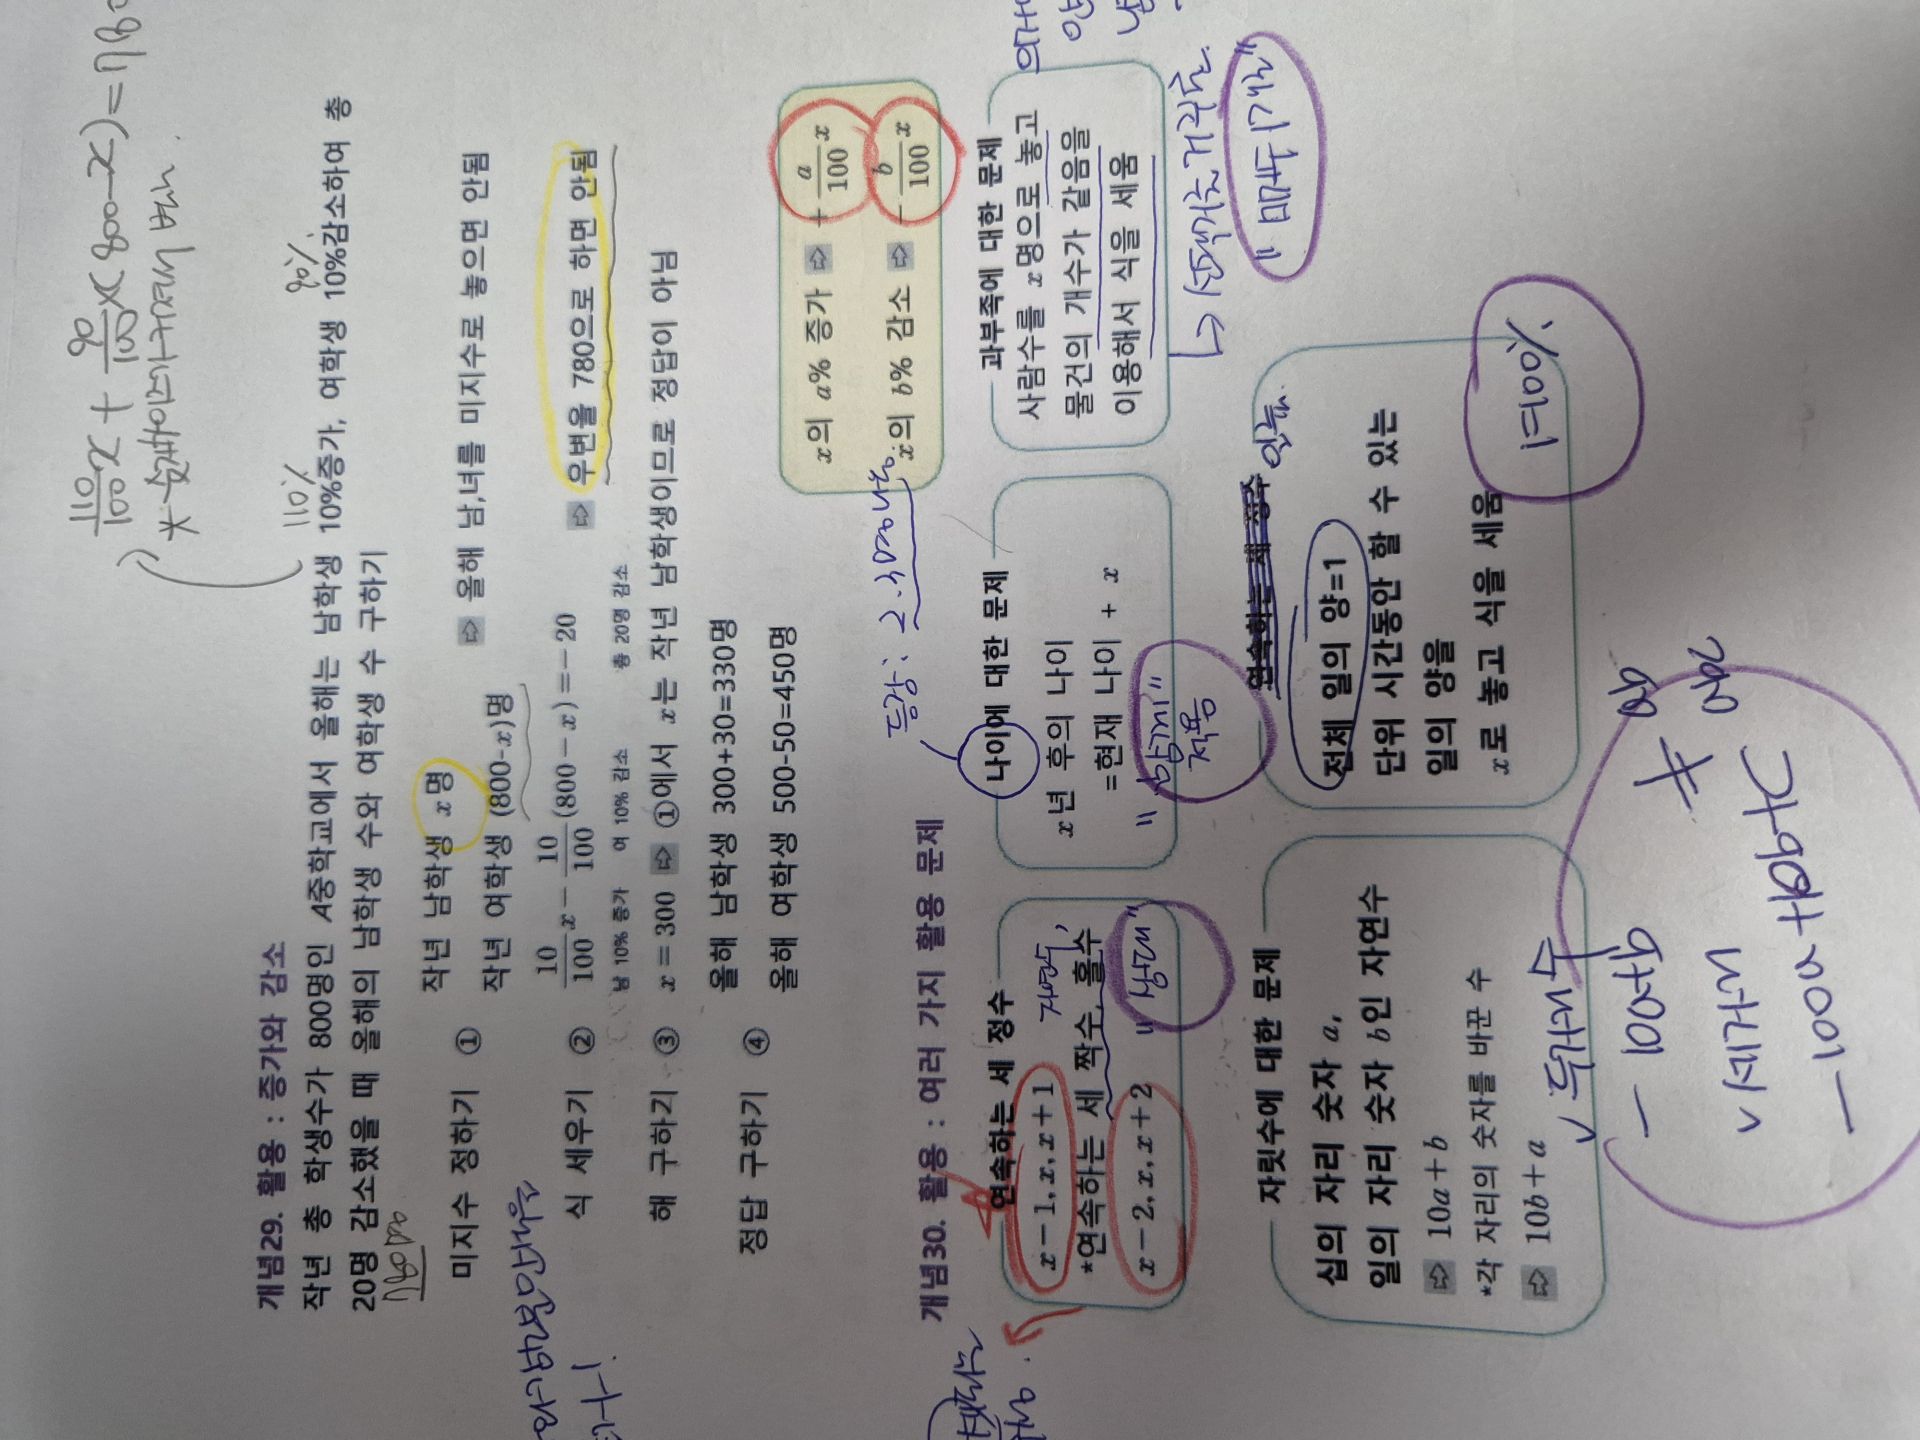 110/100 x + 90/100 × (800-x) = 780
110%
90%
개념29. 활용 : 증가와 감소
작년 총 학생수가 800명인 A중학교에서 올해는 남학생 10%증가, 여학생 10%감소하여 총
20명 감소했을 때 올해의 남학생 수와 여학생 수 구하기
780명
미지수 정하기 ① 작년 남학생 x명
작년 여학생 (800-x)명 ⇨ 올해 남,녀를 미지수로 놓으면 안됨
식 세우기 ② 10/100 x - 10/100 (800-x) = -20 ⇨ 우변을 780으로 하면 안됨
남 10% 증가 여 10% 감소 총 20명 감소
해 구하기 ③ x = 300 ⇨ ①에서 x는 작년 남학생이므로 정답이 아님
정답 구하기 ④ 올해 남학생 300+30=330명
올해 여학생 500-50=450명
x의 a% 증가 ⇨ + a/100 x
x의 b% 감소 ⇨ - b/100 x
개념30. 활용 : 여러 가지 활용 문제
연속하는 세 정수
x-1, x, x+1
*연속하는 세 짝수, 홀수
x-2, x, x+2
나이에 대한 문제
x년 후의 나이
=현재 나이 + x
"함께"
적용
과부족에 대한 문제
사람수를 x명으로 놓고
물건의 개수가 같음을
이용해서 식을 세움
자릿수에 대한 문제
십의 자리 숫자 a,
일의 자리 숫자 b인 자연수
⇨ 10a+b
*각 자리의 숫자를 바꾼 수
⇨ 10b+a
전체 일의 양=1
단위 시간동안 할 수 있는
일의 양을
x로 놓고 식을 세움
1=100%
∨ 두자리 수
- 10a+b ≠ ab
∨ 세자리
- 100a+10b+c abc